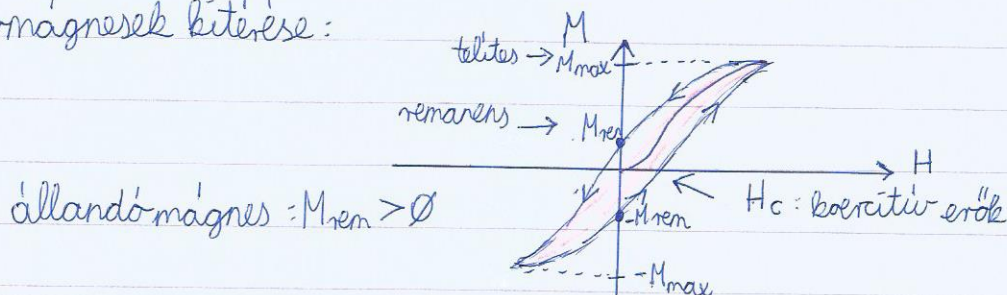 mágnesek kitérése:
M
telítes → Mmax
remanens → Mrem
H
állandómágnes: Mrem > Ø
-Mrem
Hc: koercitív erők
-Mmax